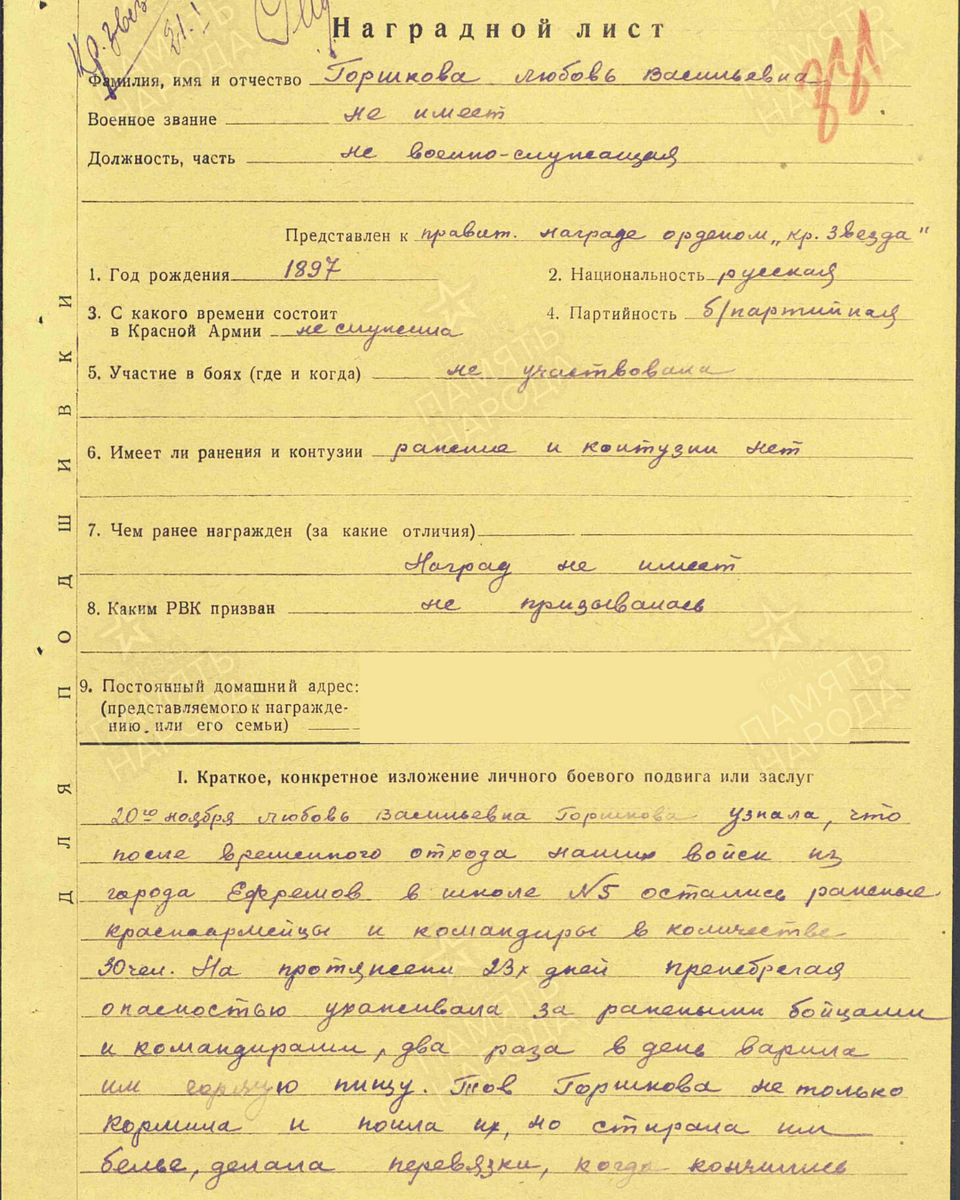 Кр. звез
21.1
Наградной лист
Фамилия, имя и отчество Горшкова Любовь Васильевна
Военное звание не имеет
Должность, часть не военно-служащая
Представлен к правит. награде орденом „кр. Звезда"
1. Год рождения 1897 2. Национальность русская
3. С какого времени состоит
в Красной Армии не служила 4. Партийность б/партийная
5. Участие в боях (где и когда) не участвовала
6. Имеет ли ранения и контузии ранение и контузии нет
7. Чем ранее награжден (за какие отличия)
Наград не имеет
8. Каким РВК призван не призывалась
9. Постоянный домашний адрес:
(представляемого к награжде-
нию или его семьи)
I. Краткое, конкретное изложение личного боевого подвига или заслуг
20го ноября Любовь Васильевна Горшкова узнала, что
после временного отхода наших войск из
города Ефремов в школе №5 остались раненые
красноармейцы и командиры в количестве
30чел. На протяжени 23х дней пренебрегая
опасностью ухаживала за ранеными бойцами
и командирами, два раза в день варила
им горячую пищу. Тов Горшкова не только
кормила и поила их, но стирала им
белье, делала перевязки, когда кончились
ДЛЯ ПОДШИВКИ
ПАМЯТЬ НАРОДА